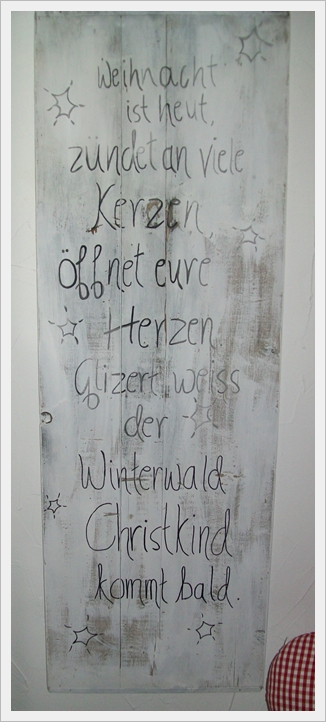 Weihnacht
ist heut,
zündet an viele
Kerzen,
Öffnet eure
Herzen
Glizert weiss
der
Winterwald
Christkind
kommt bald.